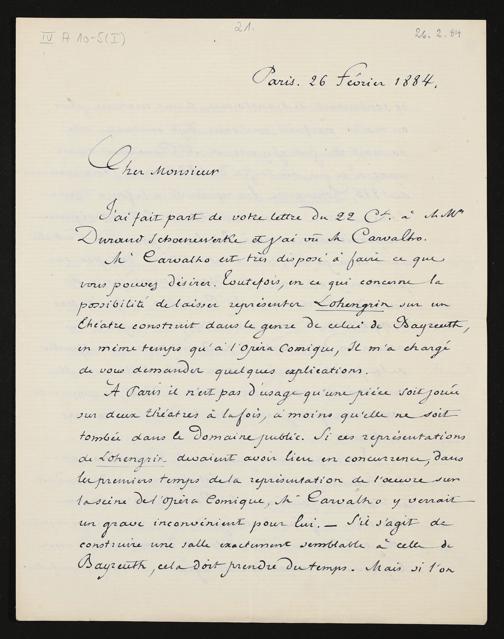 IV A 10-5 (I)
21.
26.2.84
Paris. 26 Février 1884.
Cher Monsieur
J'ai fait part de votre lettre du 22 Ct. à M.Mrs
Durand Schoenewerke et j'ai vu Mr Carvalho.
Mr Carvalho est très disposé à faire ce que
vous pouvez désirer. Toutefois, en ce qui concerne la
possibilité de laisser représenter Lohengrin sur un
théatre construit dans le genre de celui de Bayreuth,
en même temps qu'à l'Opéra Comique, Il m'a chargé
de vous demander quelques explications.
A Paris il n'est pas d'usage qu'une pièce soit jouée
sur deux théatres à la fois, à moins qu'elle ne soit
tombée dans le Domaine public. Si ces représentations
de Lohengrin devaient avoir lieu en concurrence, dans
les premiers temps de la représentation de l'œuvre sur
la scène de l'Opéra Comique, Mr Carvalho y verrait
un grave inconvénient pour lui. — S'il s'agit de
construire une salle exactement semblable à celle de
Bayreuth, cela doit prendre du temps. Mais si l'on